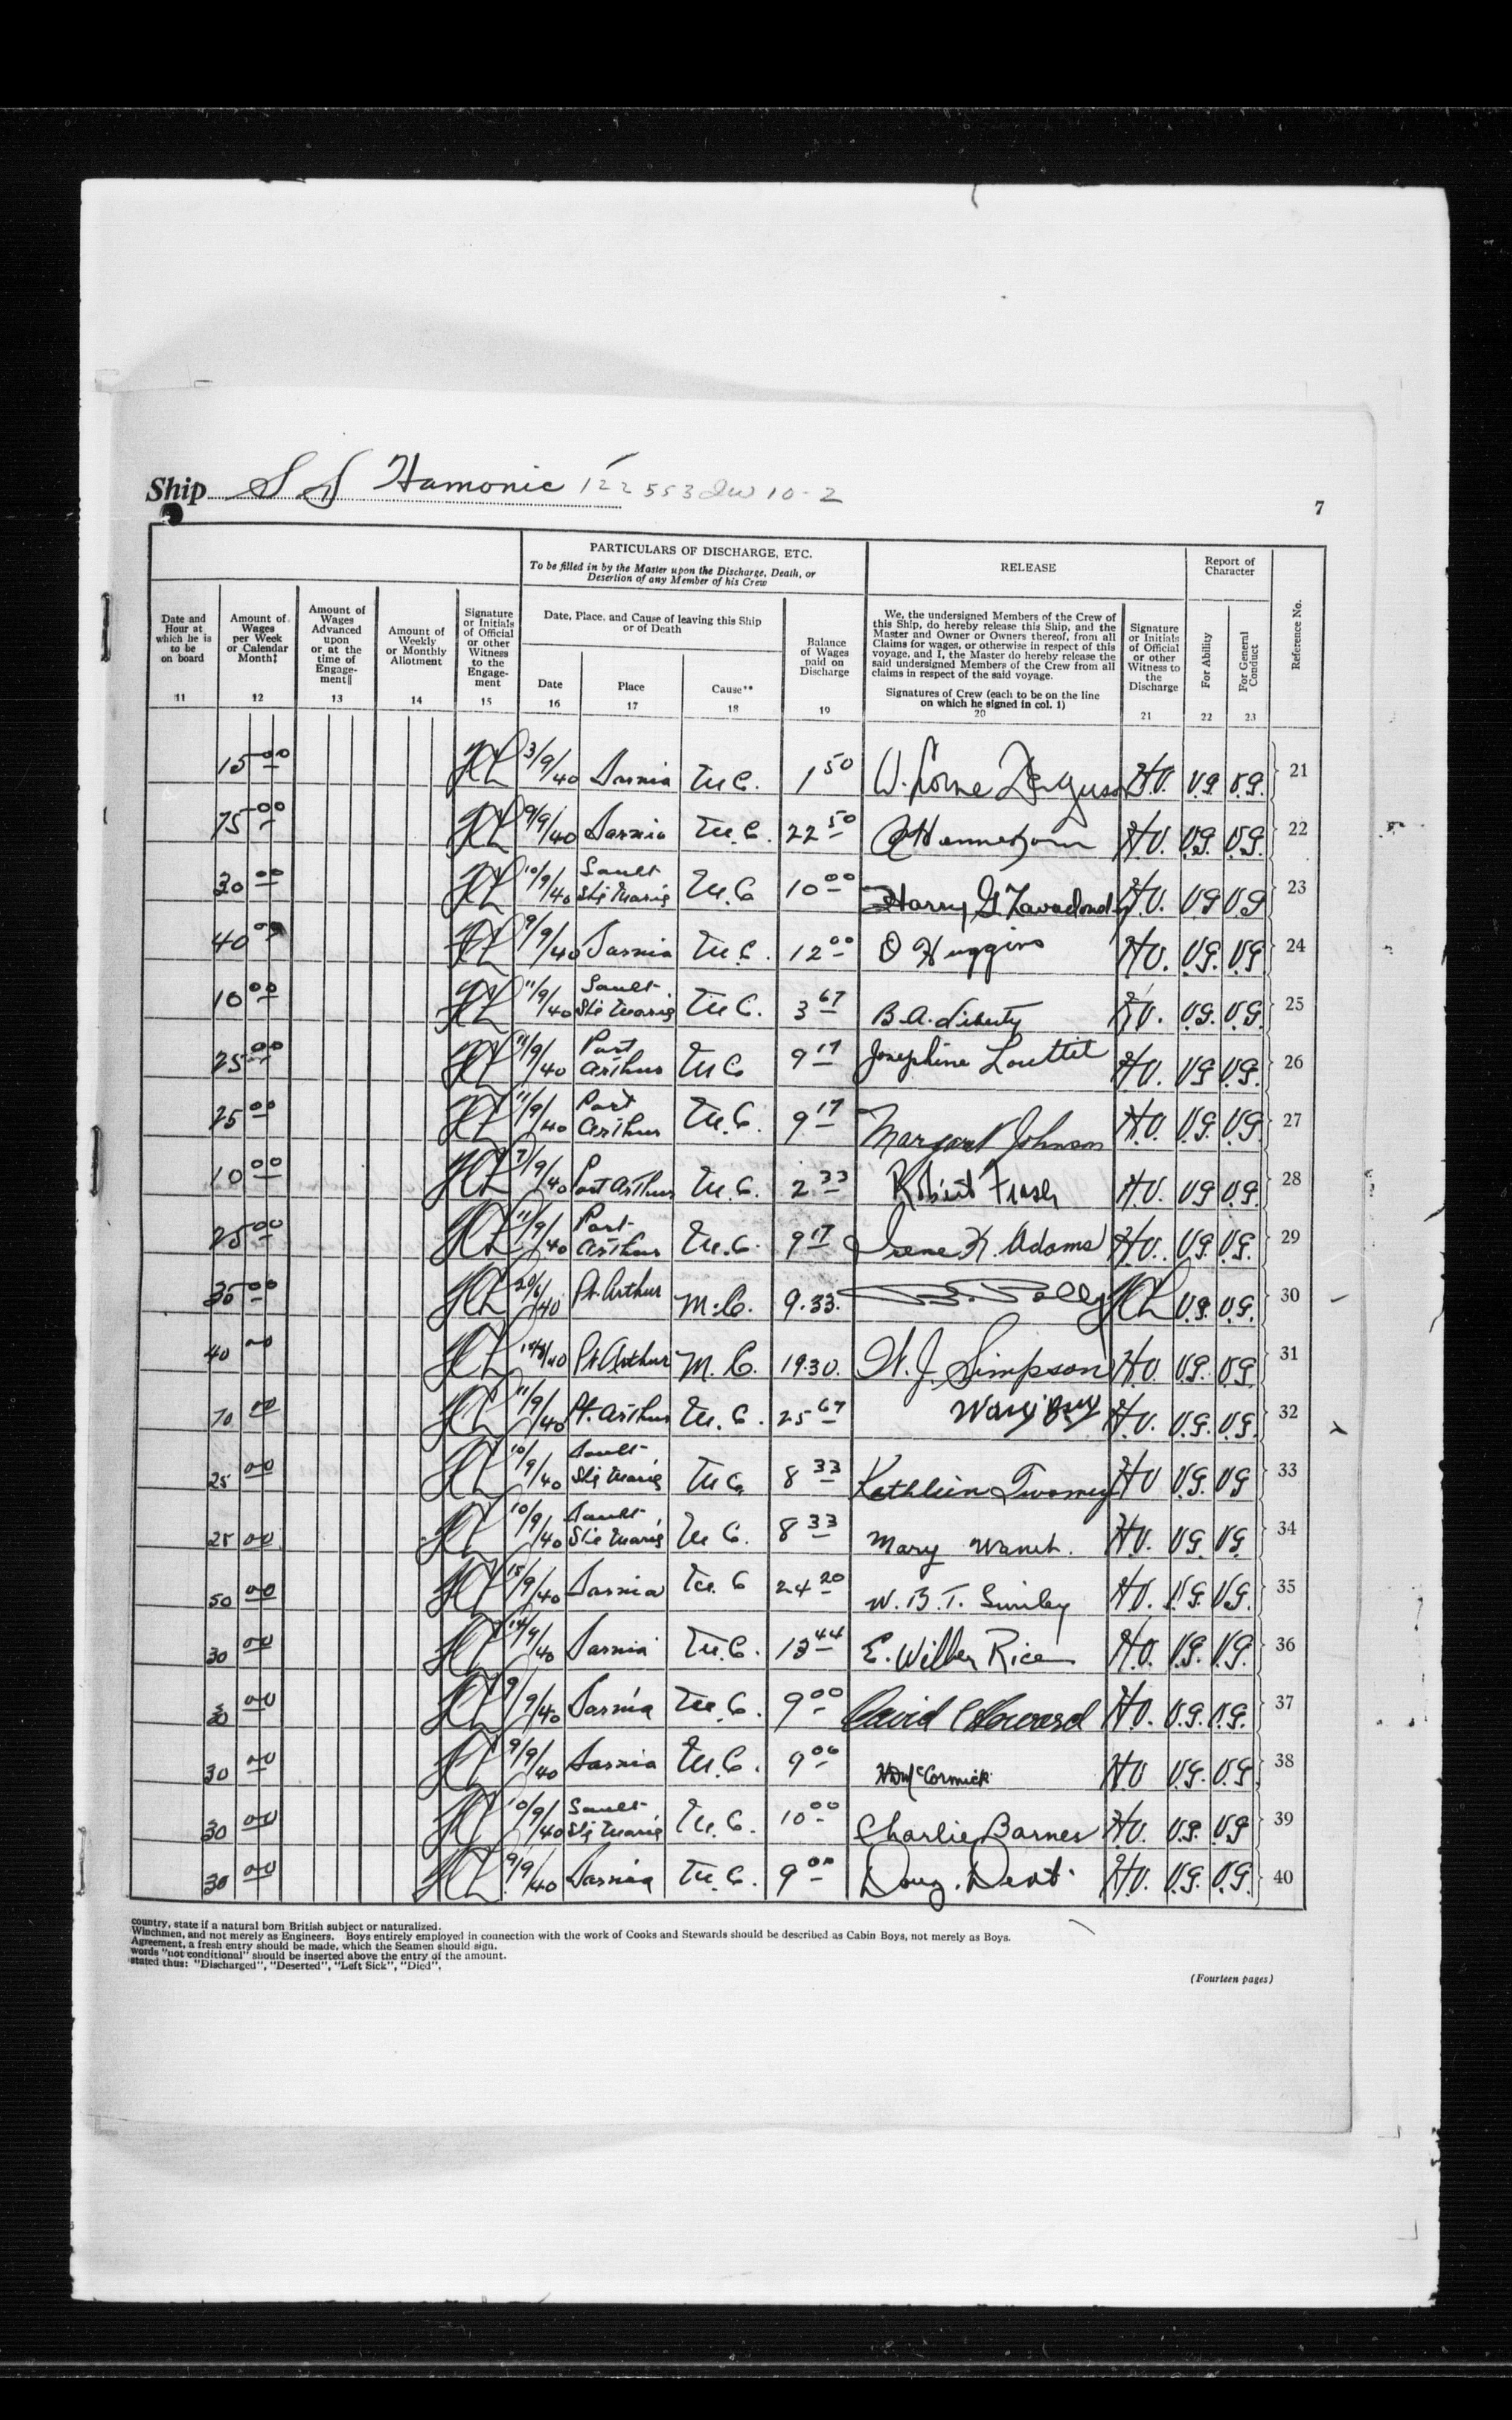 Ship S S Hamonic 122553 10-2
7
PARTICULARS OF DISCHARGE, ETC.
To be filled in by the Master upon the Discharge, Death, or
Desertion of any Member of his Crew
RELEASE
Report of
Character
Reference No.
Date and
Hour at
which he is
to be
on board
11
Amount of
Wages
per Week
or Calendar
Month‡
12
Amount of
Wages
Advanced
upon
or at the
time of
Engage-
ment‖
13
Amount of
Weekly
or Monthly
Allotment
14
Signature
or Initials
of Official
or other
Witness
to the
Engage-
ment
15
Date, Place, and Cause of leaving this Ship
or of Death
Date
16
Place
17
Cause**
18
Balance
of Wages
paid on
Discharge
19
We, the undersigned Members of the Crew of
this Ship, do hereby release this Ship, and the
Master and Owner or Owners thereof, from all
Claims for wages, or otherwise in respect of this
voyage, and I, the Master do hereby release the
said undersigned Members of the Crew from all
claims in respect of the said voyage.
Signatures of Crew (each to be on the line
on which he signed in col. 1)
20
Signature
or Initials
of Official
or other
Witness to
the
Discharge
21
For Ability
22
For General
Conduct
23
15 00 3/9/40 Sarnia M.C. 1 50 W. Lorne Ferguson H.V. V.G. V.G. 21
75 00 9/9/40 Sarnia M.C. 22 50 H.V. V.G. V.G. 22
30 00 10/9/40 Sault Ste Marie M.C. 10 00 Harry G. H.V. V.G. V.G. 23
40 00 9/9/40 Sarnia M.C. 12 00 O Huggins H.V. V.G. V.G. 24
10 00 11/9/40 Sault Ste Marie M.C. 3 67 B.A. Liberty H.V. V.G. V.G. 25
25 00 11/9/40 Port Arthur M.C. 9 17 Josephine Louttit H.V. V.G. V.G. 26
25 00 11/9/40 Port Arthur M.C. 9 17 Margaret Johnson H.V. V.G. V.G. 27
10 00 7/9/40 Port Arthur M.C. 2 33 Robert Fraser H.V. V.G. V.G. 28
25 00 11/9/40 Port Arthur M.C. 9 17 Irene K. Adams H.V. V.G. V.G. 29
35 00 Pt. Arthur M.C. 9.33. V.G. V.G. 30
40 00 Pt. Arthur M.C. 19.30. W.J. Simpson H.V. V.G. V.G. 31
70 00 11/9/40 Pt. Arthur M.C. 25 67 H.V. V.G. V.G. 32
25 00 10/9/40 Sault Ste Marie M.C. 8 33 Kathleen Twomey H.V. V.G. V.G. 33
25 00 10/9/40 Sault Ste Marie M.C. 8 33 Mary H.V. V.G. V.G. 34
50 00 15/9/40 Sarnia M.C. 24 20 W.B.T. Smiley H.V. V.G. V.G. 35
30 00 14/9/40 Sarnia M.C. 13 44 E. Wilber Rice H.V. V.G. V.G. 36
30 00 9/9/40 Sarnia M.C. 9 00 David C Howard H.V. V.G. V.G. 37
30 00 9/9/40 Sarnia M.C. 9 00 McCormick H.V. V.G. V.G. 38
30 00 10/9/40 Sault Ste Marie M.C. 10 00 Charlie Barnes H.V. V.G. V.G. 39
30 00 9/9/40 Sarnia M.C. 9 00 Doug. Dent H.V. V.G. V.G. 40
country, state if a natural born British subject or naturalized.
Winchmen, and not merely as Engineers. Boys entirely employed in connection with the work of Cooks and Stewards should be described as Cabin Boys, not merely as Boys.
Agreement, a fresh entry should be made, which the Seamen should sign.
words "not conditional" should be inserted above the entry of the amount.
stated thus: "Discharged", "Deserted", "Left Sick", "Died".
(Fourteen pages)